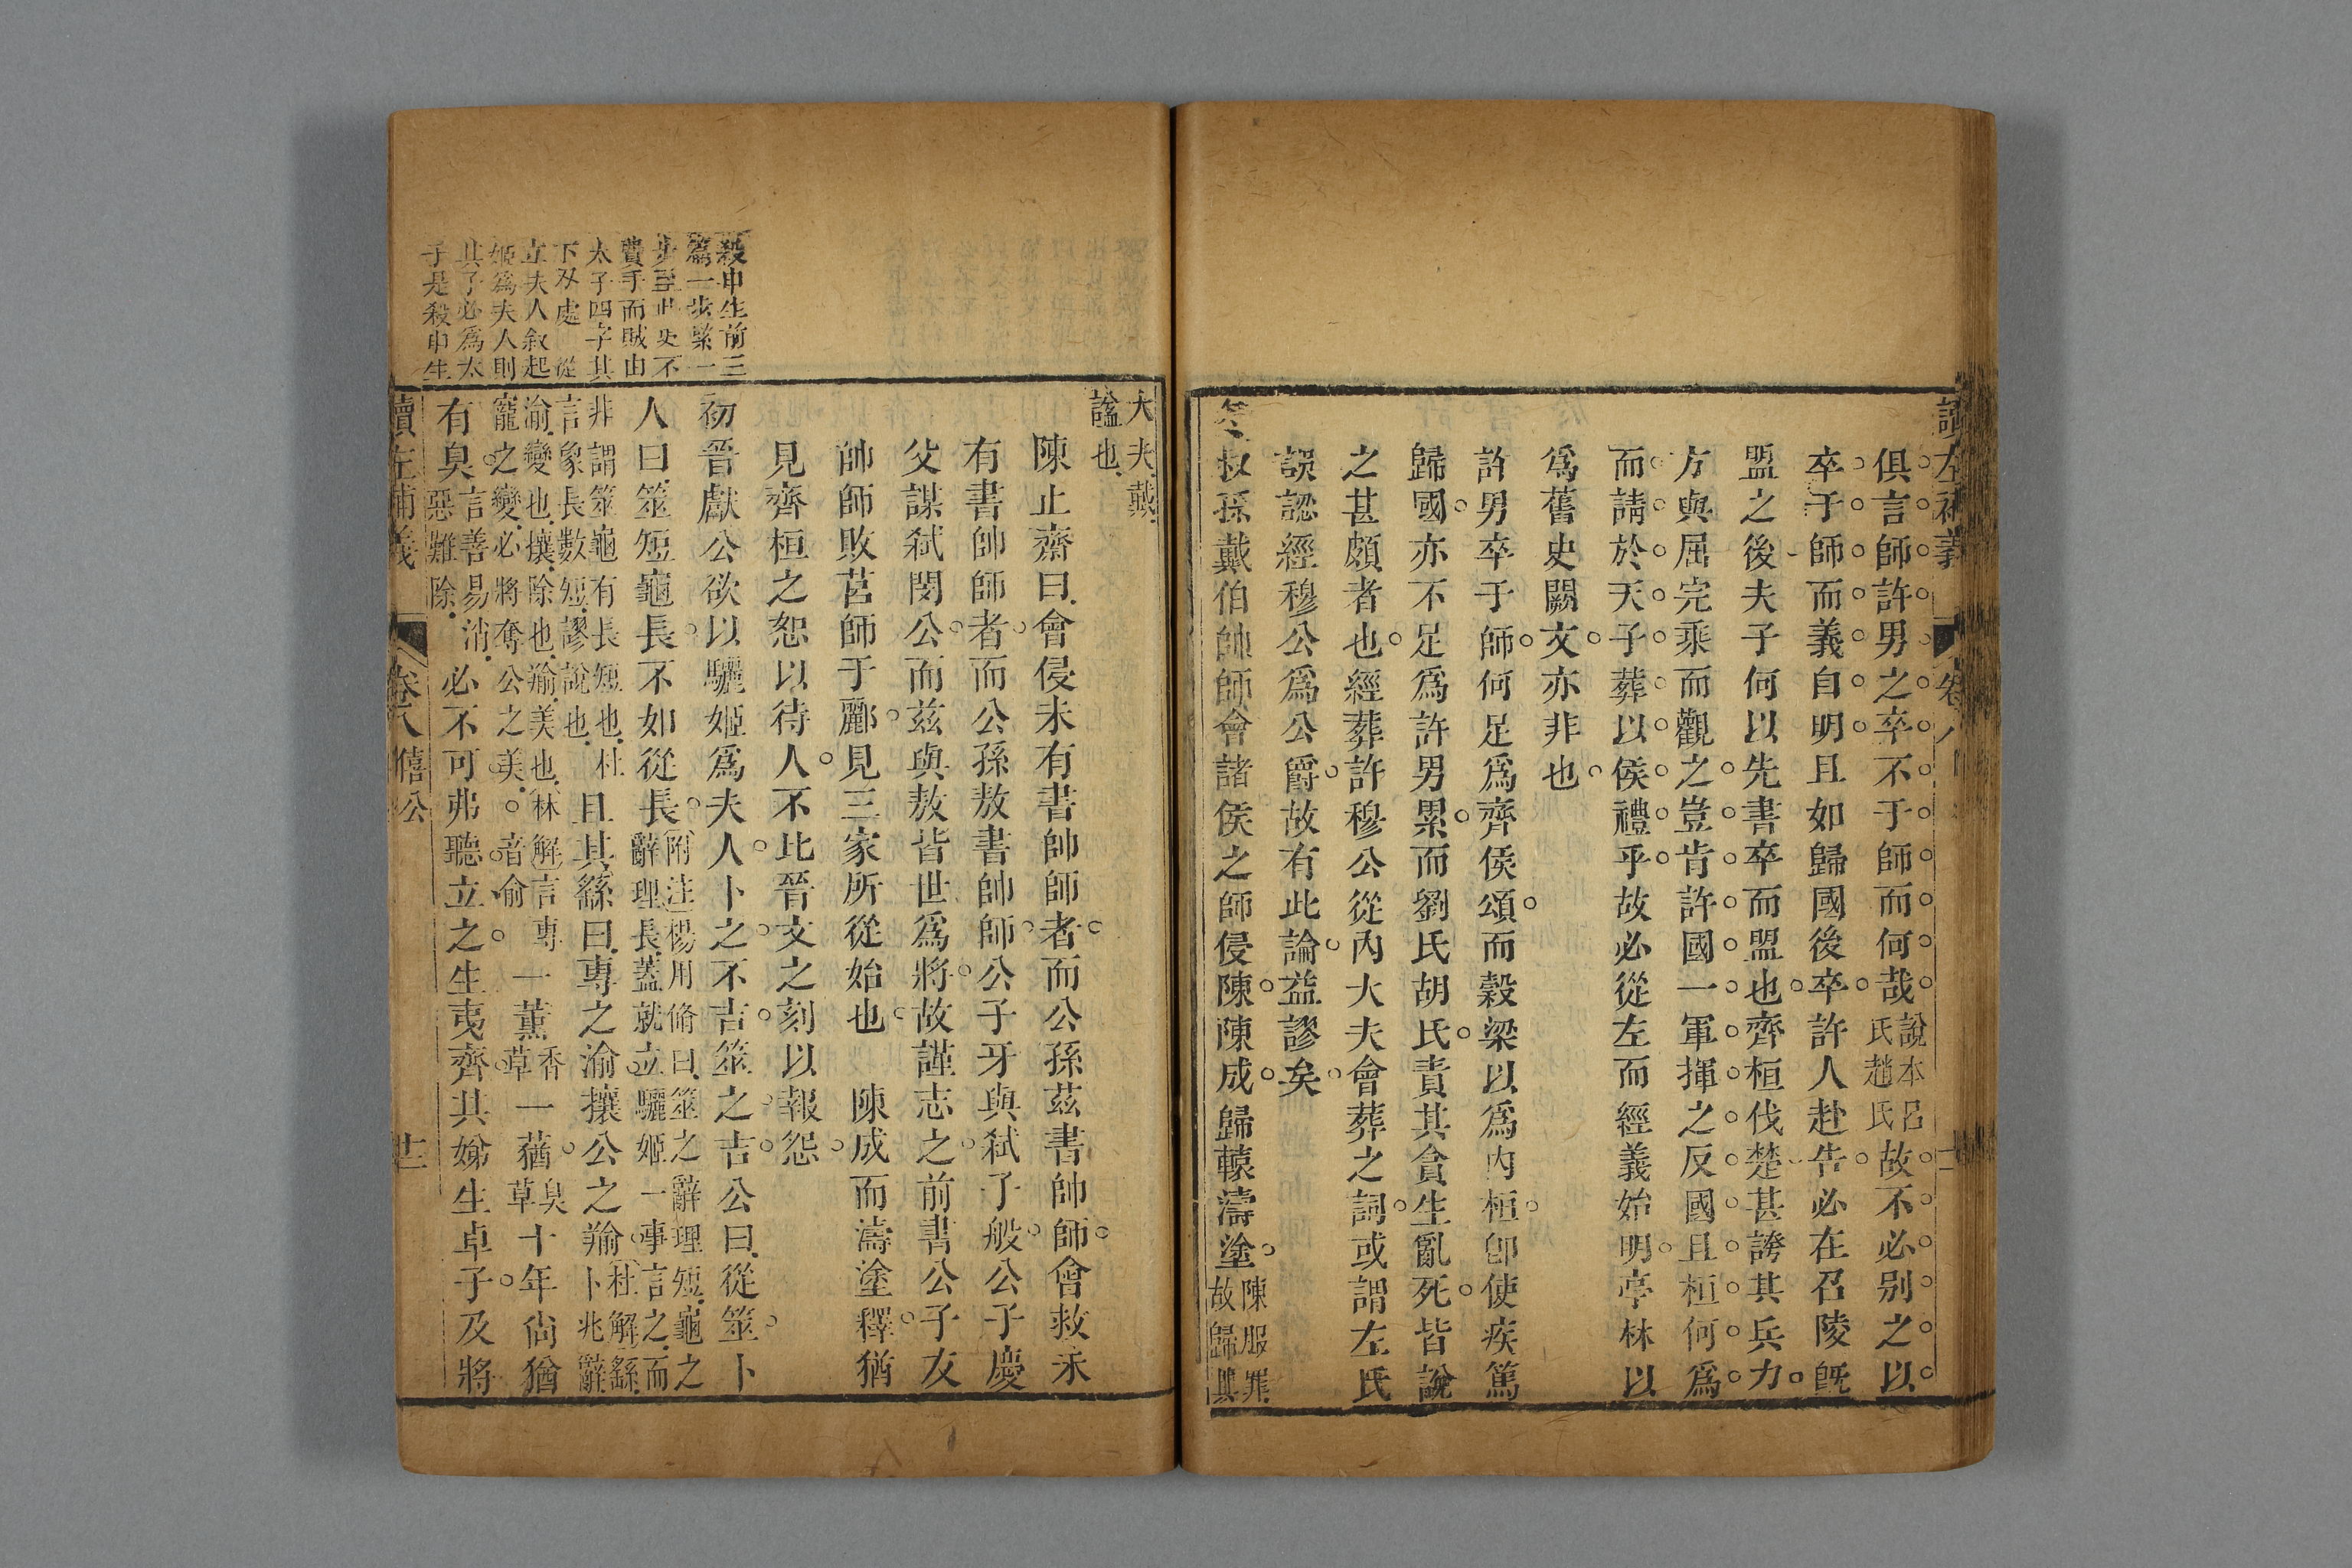 讀左補義
卷八
俱言師許男之卒不于師而何哉說本呂氏趙氏故不必别之以
卒于師而義自明且如歸國後卒許人赴告必在召陵旣
盟之後夫子何以先書卒而盟也齊桓伐楚甚誇其兵力
方與屈完乘而觀之豈肯許國一軍揮之反國且桓何爲
而請於天子葬以侯禮乎故必從左而經義始明亭林以
爲舊史闕文亦非也
許男卒于師何足爲齊侯頌而穀梁以爲内桓卽使疾篤
歸國亦不足爲許男累而劉氏胡氏責其貪生亂死皆說
之甚頗者也經葬許穆公從内大夫會葬之詞或謂左氏
誤認經穆公爲公爵故有此論益謬矣
冬叔孫戴伯帥師會諸侯之師侵陳陳成歸轅濤塗陳服罪故歸其
大夫戴
諡也
陳止齋曰會侵未有書帥師者而公孫茲書帥師會救未
有書帥師者而公孫敖書帥師公子牙與弑子般公子慶
父謀弑閔公而茲與敖皆世爲將故謹志之前書公子友
帥師敗莒師于酈見三家所從始也 陳成而濤塗釋猶
見齊桓之恕以待人不比晉文之刻以報怨
初晉獻公欲以驪姬爲夫人卜之不吉筮之吉公曰從筮卜
人曰筮短龜長不如從長附注楊用脩曰筮之辭理短龜之辭理長蓋就立驪姬一事言之而
非謂筮龜有長短也杜言象長數短謬說也且其繇曰專之渝攘公之羭杜解繇卜兆辭
渝變也攘除也羭美也林解言專寵之變必將奪公之美音俞一薰香草一蕕臭草十年尙猶
有臭言善易消惡難除必不可弗聽立之生奚齊其娣生卓子及將
讀左補義
卷八僖公
十二
殺申生前三
篇一步緊一
步至此更不
費手而賊由
太子四字其
下刄處 從
立夫人敘起
姬爲夫人則
其子必爲太
子是殺申生